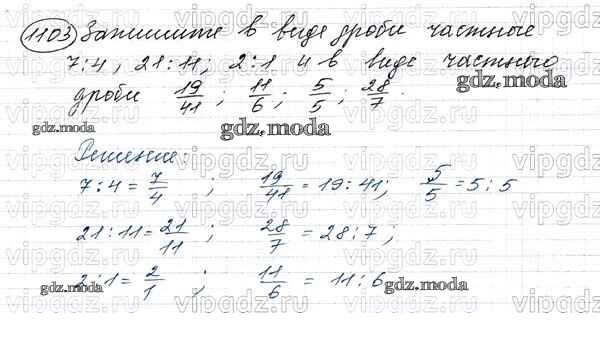 1103 Запишите в виде дроби частные
7:4, 21:11; 2:1 и в виде частного
дроби 19/41; 11/6; 5/5; 28/7.
gdz.moda
gdz.moda
gdz.moda
Решение:
7:4 = 7/4 ; 19/41 = 19:41; 5/5 = 5:5
21:11 = 21/11 ; 28/7 = 28:7;
2:1 = 2/1 ; 11/6 = 11:6
gdz.moda
gdz.moda
vipgdz.ru